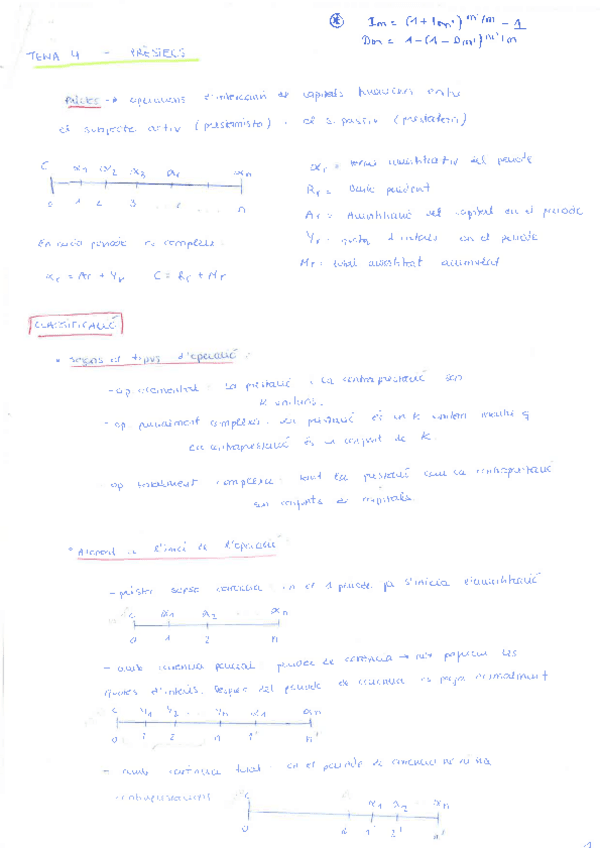 * Im = (1 + Im')^m'/m - 1
Dm = 1 - (1 - Dm')^m'/m
TEMA 4 - PRÉSTECS
operacions d'intercanvi de capitals financers entre
el subjecte actiu (prestamista) i el s. passiu (prestatari)
C α1 α2 α3 αr αn
0 1 2 3 r n
αr = terme amortitzatiu del període
Rr = Deute pendent
Ar = Amortització del capital en el període
Yr = quota d'interès en el període
Mr = total amortitzat acumulat
En cada període es compleix:
αr = Ar + Yr C = Rr + Mr
CLASSIFICACIÓ
• Segons el tipus d'operació:
- op. elemental: la prestació i la contraprestació són
K unitaris.
- op. parcialment complexa: la prestació és un K unitari mentre q
la contraprestació és un conjunt de K.
- op totalment complexa: tant la prestació com la contraprestació
són conjunts de capitals
• Atenent a l'inici de l'operació
- préstec sense carència: en el 1 període ja s'inicia l'amortització
C α1 α2 αn
0 1 2 n
- amb carència parcial: període de carència → només paguem les
quotes d'interès. Després del període de carència es paga normalment
C Y1 Y2 Yn α1 αn
0 1 2 n 1' n'
- amb carència total: en el període de carència no hi ha
contraprestació
C α1 α2 αn
0 1' 2' n'
1